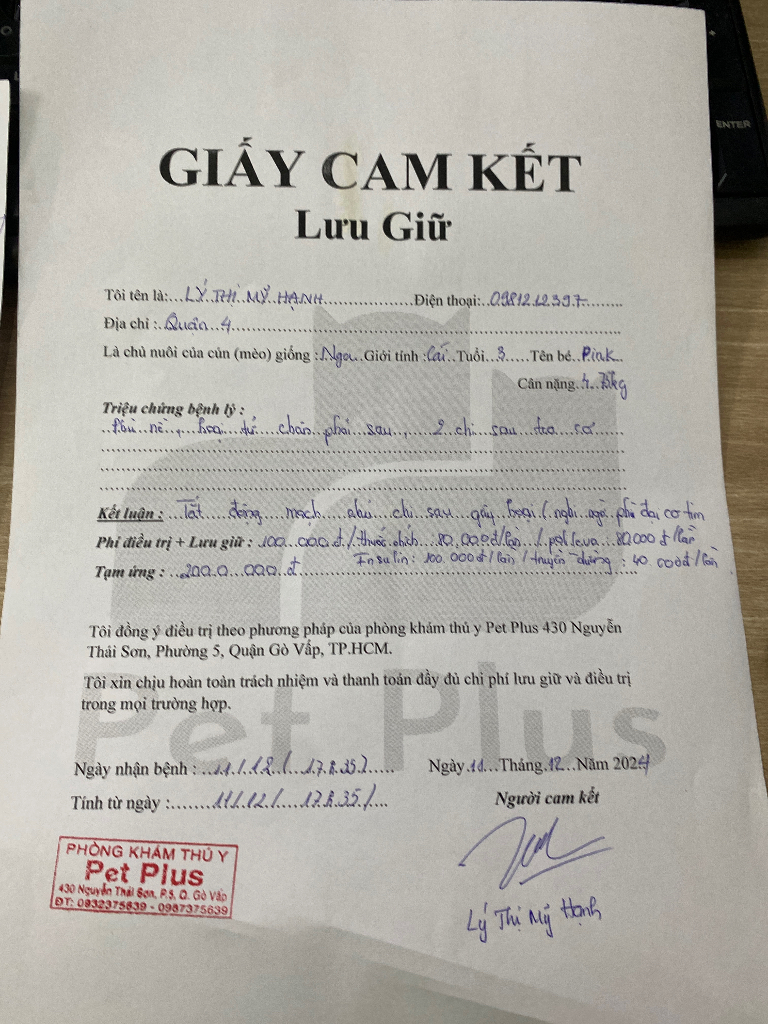 ENTER
GIẤY CAM KẾT
Lưu Giữ
Tôi tên là:...LÝ THỊ MỸ HẠNH.................Điện thoại:..0981212397........
Địa chỉ :..Quận..4..........
Là chủ nuôi của cún (mèo) giống :.Nga..Giới tính :.Cái..Tuổi..3.....Tên bé..Pink..
Cân nặng.4.7kg
Triệu chứng bệnh lý :
..Phù nề.., hoại tử chân phải sau.., 2 chi sau
Kết luận : Tắt động mạch chủ chi sau gây hoại (nghi ngờ phì đại cơ tim
Phí điều trị + Lưu giữ : 100.000đ/thuốc chích : 80,000đ/lần / : 80.000 đ/lần
Insulin: 100.000đ/lần / truyền đường : 40 000đ/lần
Tạm ứng : ..200.0.000.đ
Tôi đồng ý điều trị theo phương pháp của phòng khám thú y Pet Plus 430 Nguyễn
Thái Sơn, Phường 5, Quận Gò Vấp, TP.HCM.
Tôi xin chịu hoàn toàn trách nhiệm và thanh toán đầy đủ chi phí lưu giữ và điều trị
trong mọi trường hợp.
Pet Plus
Ngày nhận bệnh : ...11/12/...17.h.35/..... Ngày.11...Tháng.12...Năm 2024
Tính từ ngày :.......11/12/....17h.35/...
Người cam kết
Lý Thị Mỹ Hạnh
PHÒNG KHÁM THÚ Y
Pet Plus
430 Nguyễn Thái Sơn, P.5, Q. Gò Vấp
ĐT: 0932375639 - 0967375639